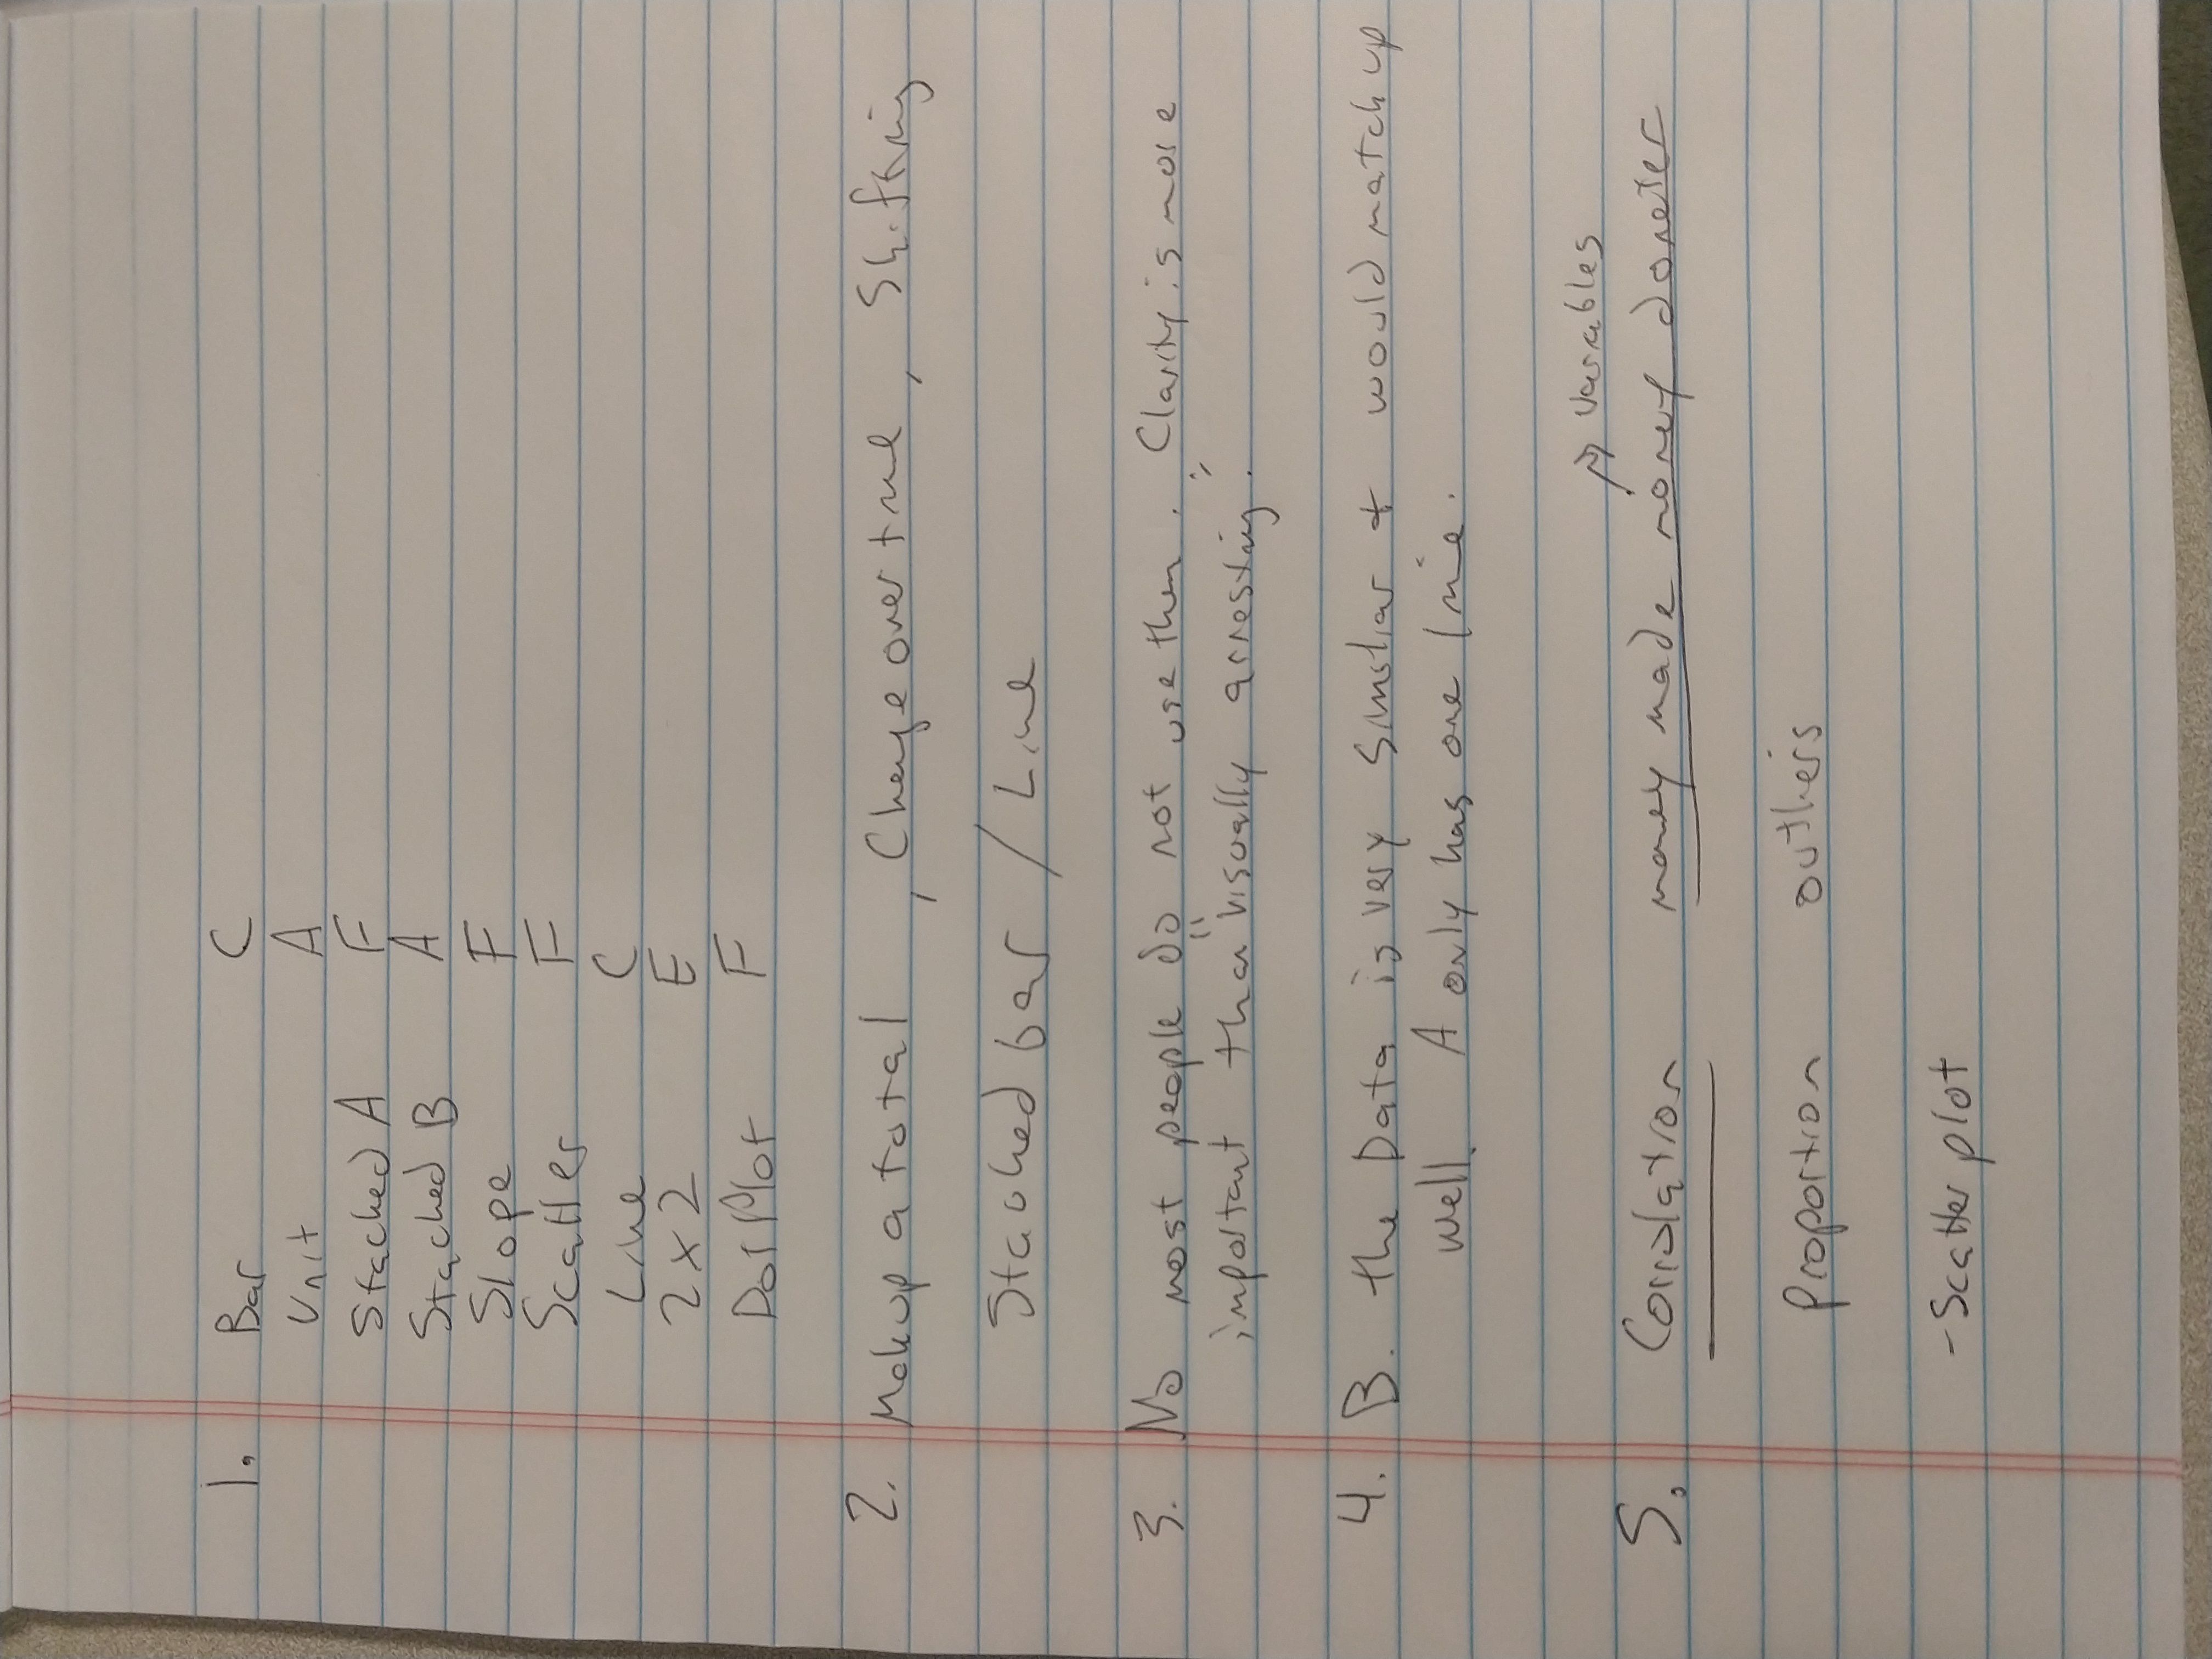 1. Bar C
Unit A
Stacked A F
Stacked B A
Slope F
Scatter F
Line C
2x2 E
Dot Plot F
2. Makup a total , Change over time , Shifting
Stacked bar / Line
3. No most people do not use them. Clarity is more
important than "visually arresting."
4. B. the Data is very similiar + would match up
well. A only has one line.
→ Variables
5. Correlation money made money donater
proportion outliers
- Scatter plot